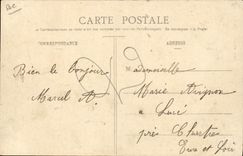 CARTE POSTALE
CORRESPONDANCE
ADRESSE
Bien le Bonjour
Marcel A.
Mademoiselle
Marie Avignon
à Lucé
près Chartres
Eure et Loir